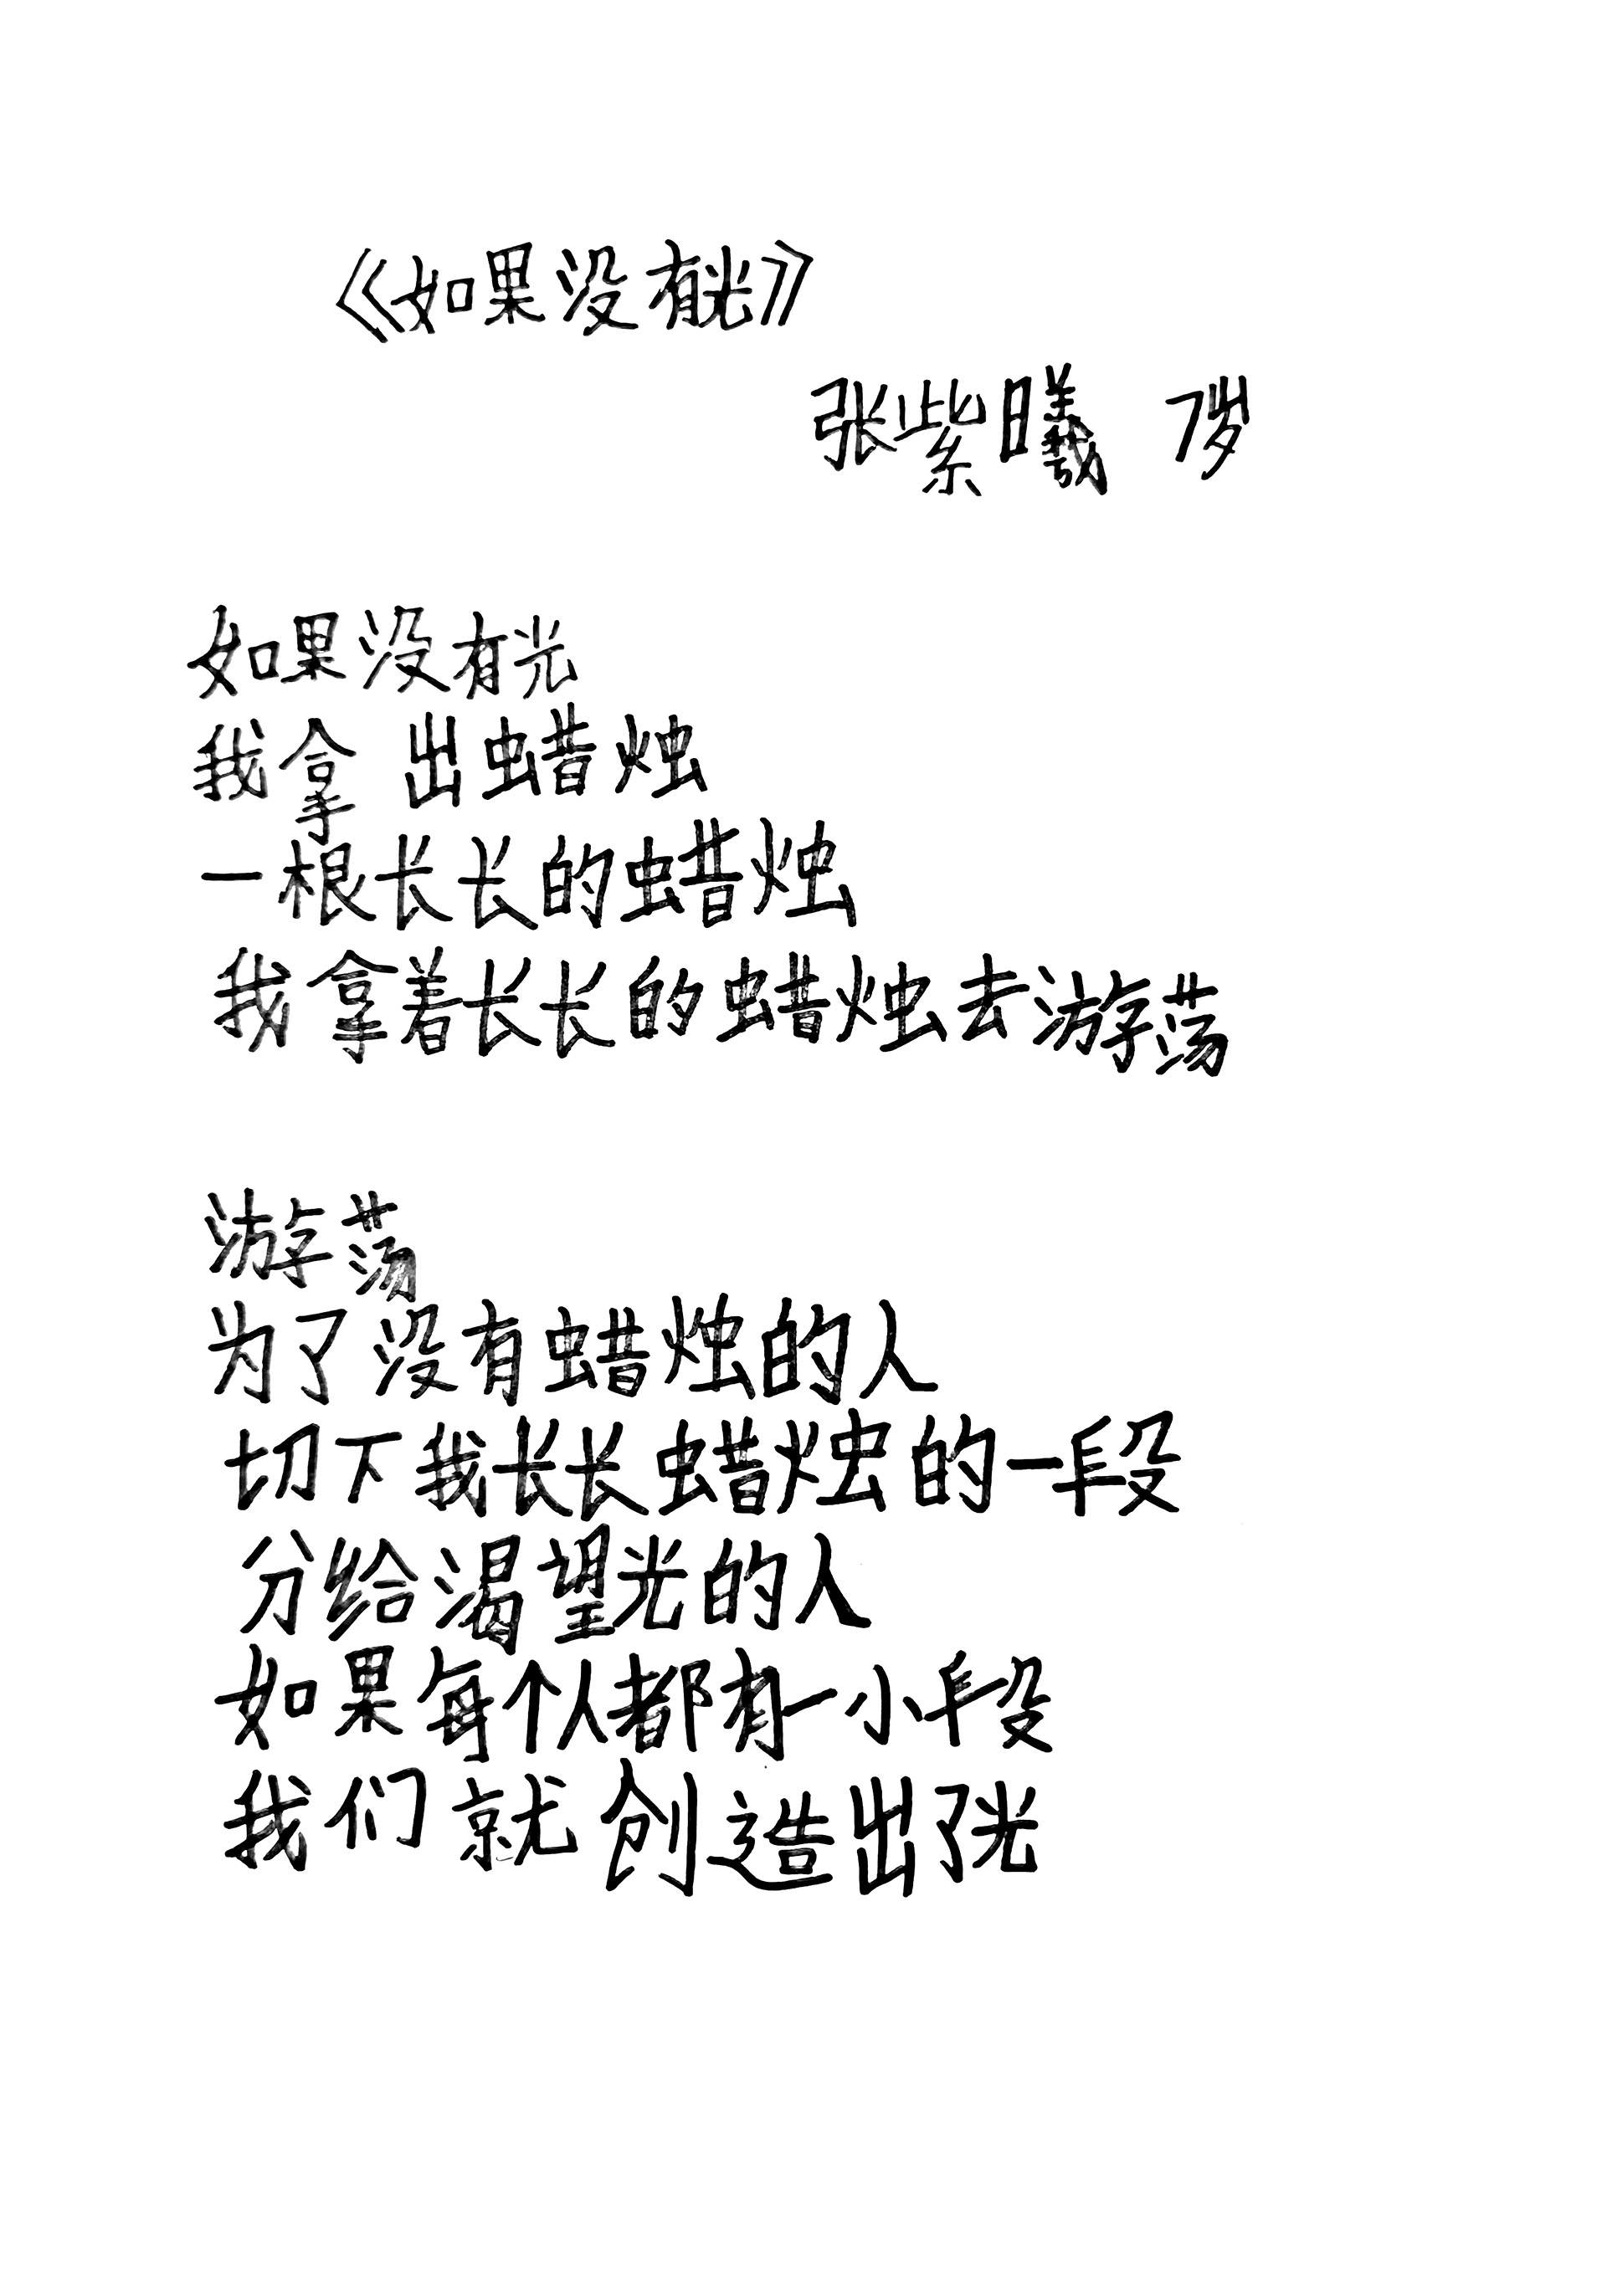 《如果没有光》
张紫曦 7岁
如果没有光
我拿出蜡烛
一根长长的蜡烛
我拿着长长的蜡烛去游荡
游荡
为了没有蜡烛的人
切下我长长蜡烛的一段
分给渴望光的人
如果每个人都有一小段
我们就创造出了光